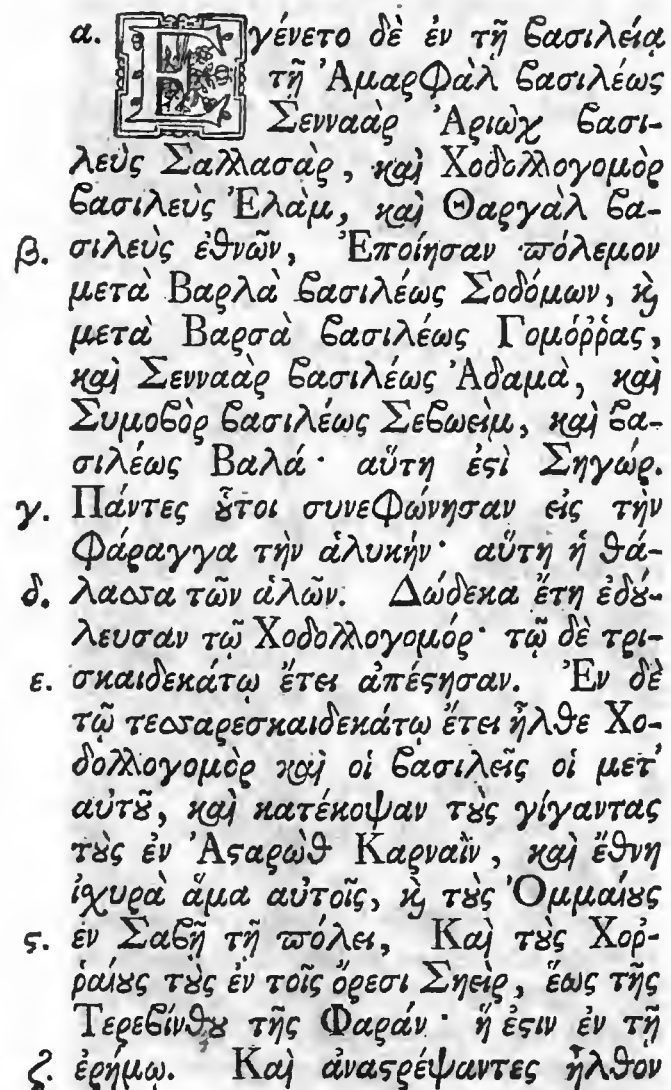 α. Ἐγένετο δὲ ἐν τῇ βασιλείᾳ
τῇ Ἀμαρφὰλ βασιλέως
Σενναὰρ Ἀριὼχ βασι-
λεὺς Σαλλασὰρ, καὶ Χοδολλογομὸρ
βασιλεὺς Ἐλὰμ, καὶ Θαργὰλ βα-
β. σιλεὺς ἐθνῶν, Ἐποίησαν πόλεμον
μετὰ Βαρλὰ βασιλέως Σοδόμων, καὶ
μετὰ Βαρσὰ βασιλέως Γομόῤῥας,
καὶ Σενναὰρ βασιλέως Ἀδαμὰ, καὶ
Συμοβὸρ βασιλέως Σεβωεὶμ, καὶ βα-
σιλέως Βαλά· αὕτη ἐστὶ Σηγώρ.
γ. Πάντες οὗτοι συνεφώνησαν εἰς τὴν
Φάραγγα τὴν ἁλυκήν· αὕτη ἡ θά-
δ. λασσα τῶν ἁλῶν. Δώδεκα ἔτη ἐδού-
λευσαν τῷ Χοδολλογομόρ· τῷ δὲ τρι-
ε. σκαιδεκάτῳ ἔτει ἀπέστησαν. Ἐν δὲ
τῷ τεσσαρεσκαιδεκάτῳ ἔτει ἦλθε Χο-
δολλογομὸρ καὶ οἱ βασιλεῖς οἱ μετ᾽
αὐτοῦ, καὶ κατέκοψαν τοὺς γίγαντας
τοὺς ἐν Ἀσταρὼθ Καρναῒν, καὶ ἔθνη
ἰχυρὰ ἅμα αὐτοῖς, καὶ τοὺς Ὀμμαίους
ϛ. ἐν Σαβῇ τῇ πόλει, Καὶ τοὺς Χοῤ-
ῥαίους τοὺς ἐν τοῖς ὄρεσι Σηεὶρ, ἕως τῆς
Τερεβίνθου τῆς Φαράν· ἥ ἐστιν ἐν τῇ
ζ. ἐρήμῳ. Καὶ ἀναστρέψαντες ἦλθον